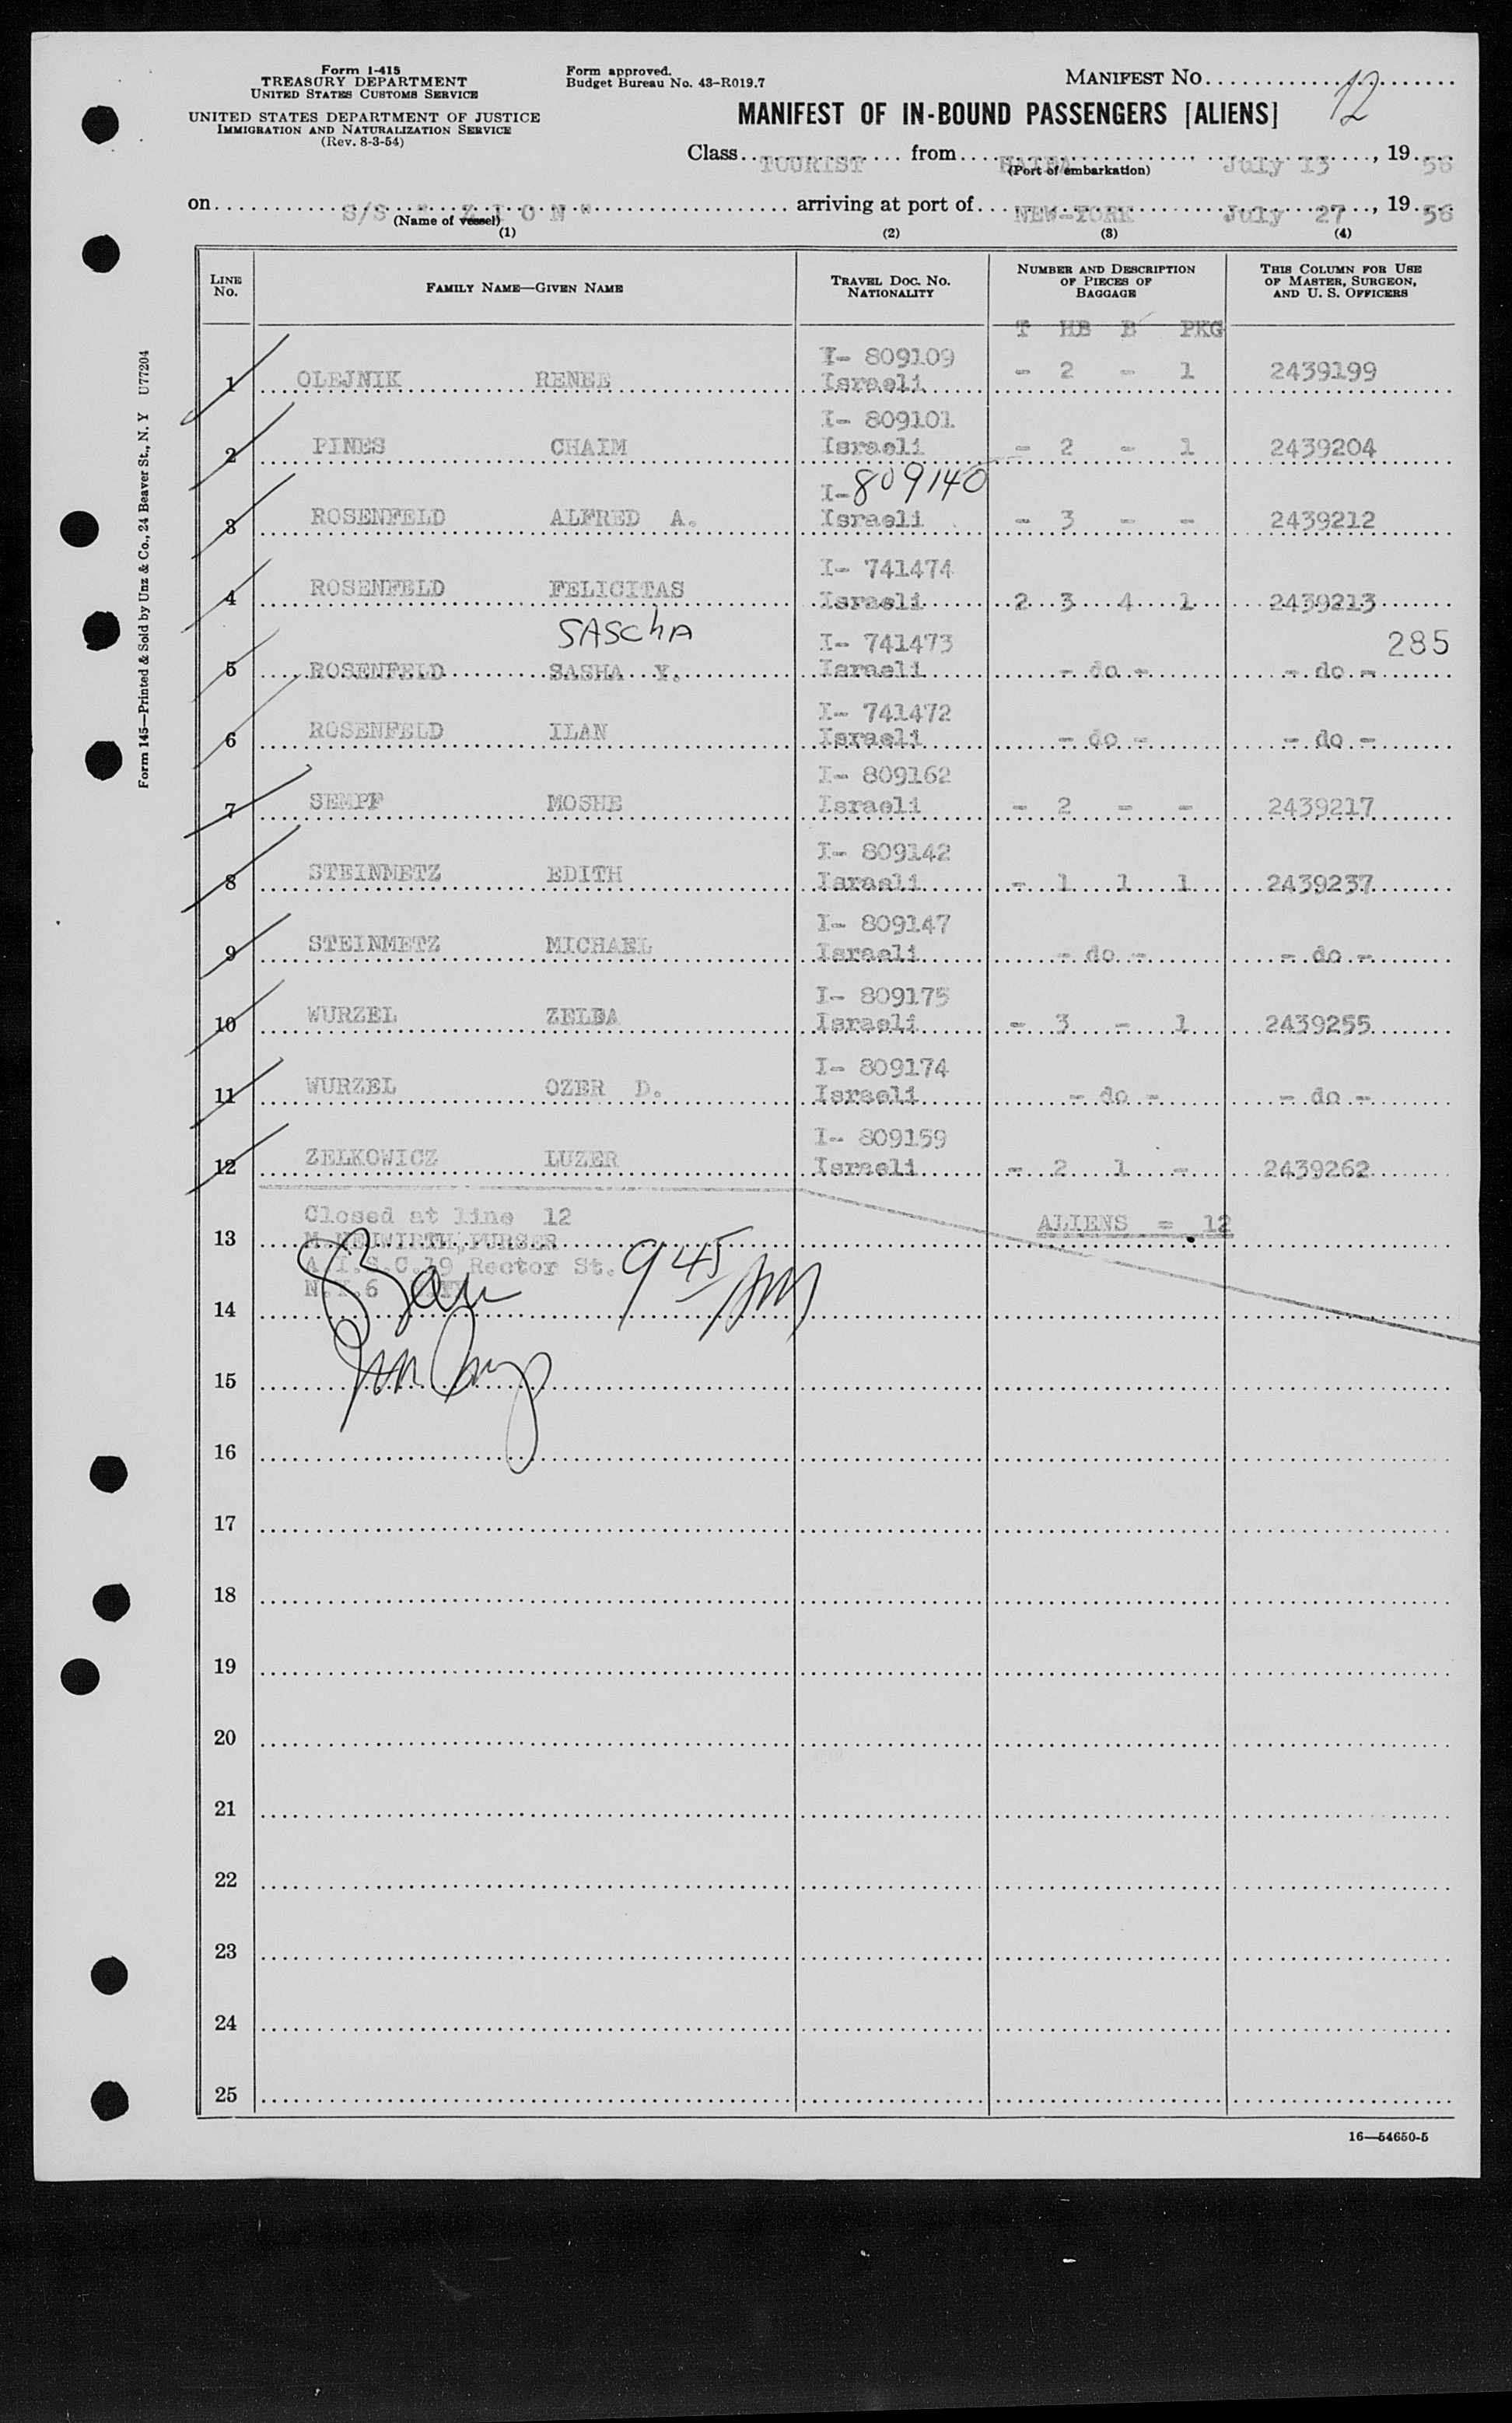 Form I-415
TREASURY DEPARTMENT
UNITED STATES CUSTOMS SERVICE
UNITED STATES DEPARTMENT OF JUSTICE
IMMIGRATION AND NATURALIZATION SERVICE
(Rev. 8-3-54)
Form approved.
Budget Bureau No. 43-R019.7
MANIFEST NO. 12
MANIFEST OF IN-BOUND PASSENGERS [ALIENS]
Class TOURIST from HAIFA July 13, 19 56
(Port of embarkation)
on S/S " Z I O N " arriving at port of NEW-YORK July 27, 19 56
(Name of vessel)
(1) (2) (3) (4)
LINE NO. FAMILY NAME—GIVEN NAME TRAVEL DOC. NO. NATIONALITY NUMBER AND DESCRIPTION OF PIECES OF BAGGAGE THIS COLUMN FOR USE OF MASTER, SURGEON, AND U. S. OFFICERS
T HB B PKG
I- 809109
1 OLEJNIK RENEE Israeli - 2 - 1 2439199
I- 809101
2 PINES CHAIM Israeli - 2 - 1 2439204
I- 809140
3 ROSENFELD ALFRED A. Israeli - 3 - - 2439212
I- 741474
4 ROSENFELD FELICITAS Israeli 2 3 4 1 2439213
SASChA I- 741473 285
5 ROSENFELD SASHA Y. Israeli - do - - do -
I- 741472
6 ROSENFELD ILAN Israeli - do - - do -
I- 809162
7 SEMPF MOSHE Israeli - 2 - - 2439217
I- 809142
8 STEINMETZ EDITH Israeli - 1 1 1 2439237
I- 809147
9 STEINMETZ MICHAEL Israeli - do - - do -
I- 809175
10 WURZEL ZELDA Israeli - 3 - 1 2439255
I- 809174
11 WURZEL OZER D. Israeli - do - - do -
I- 809159
12 ZELKOWICZ LUZER Israeli - 2 1 - 2439262
Closed at line 12
ALIENS = 12
13 M.NEUWIRTH, PURSER
A.I.S.C.19 Rector St.
N.Y.6
945 AM
14
15
16
17
18
19
20
21
22
23
24
25
16—54650-5
Form 145—Printed & Sold by Unz & Co., 24 Beaver St., N. Y U77204